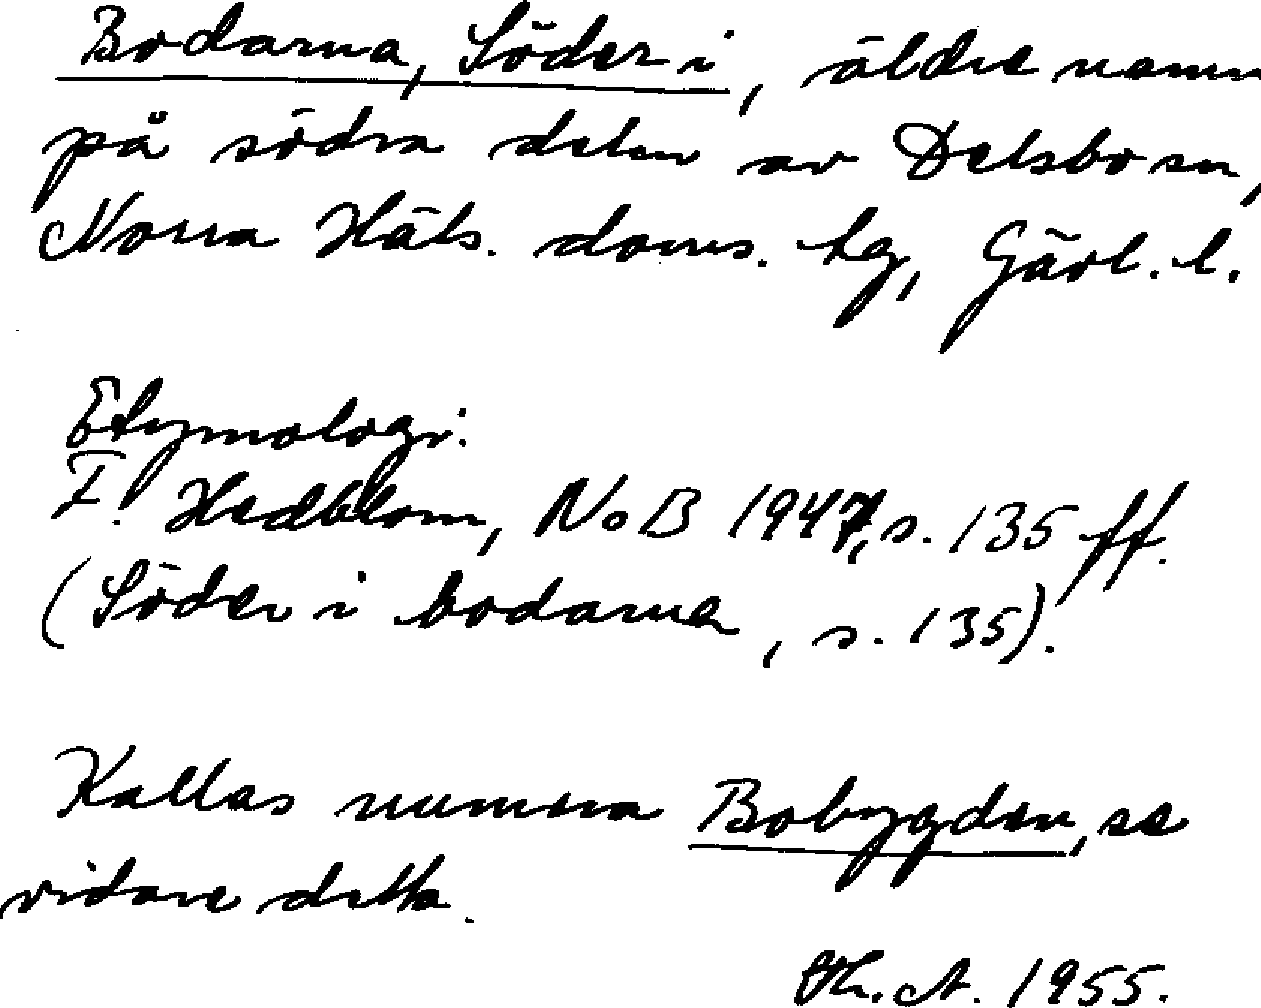 Bodarna, Söder i, äldre namn
på södra delen av Delsbo sn,
Norra Häls. doms. hg, Gävl. l.
Etymologi:
F. Hedblom, NoB 1947, s. 135 ff.
(Söder i bodarna, s. 135).
Kallas numera Bobygden, se
vidare detta.
Th. A. 1955.